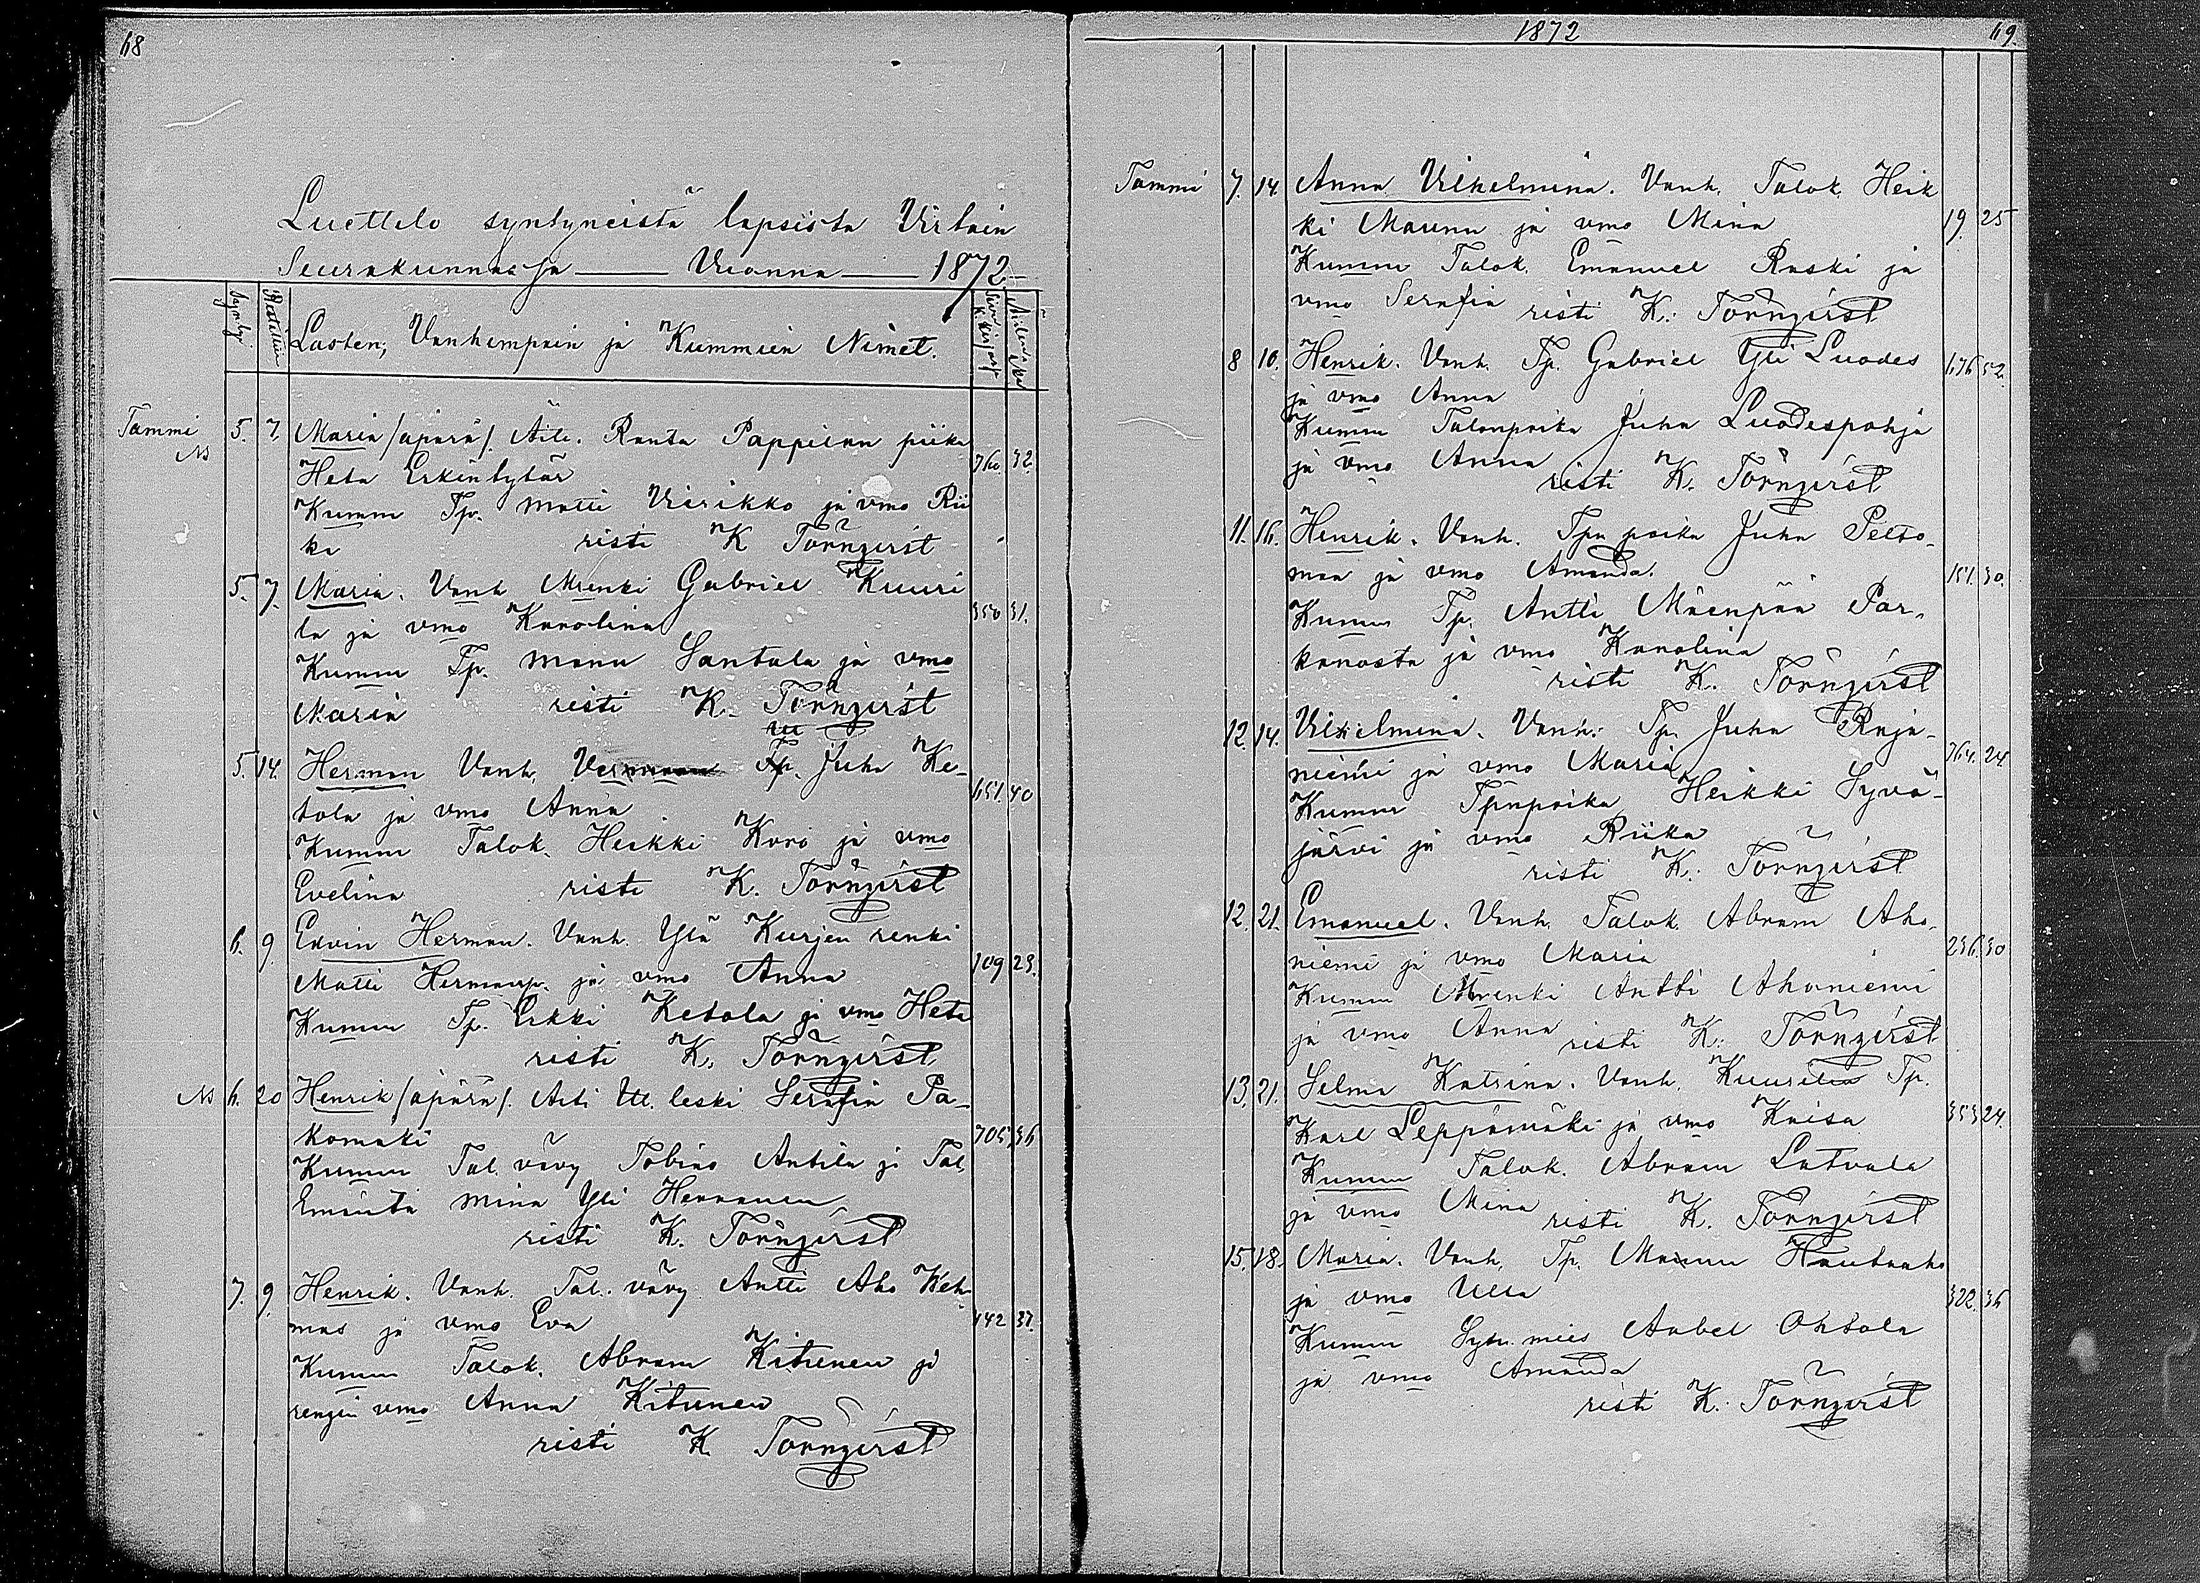 68
Luettelo syntyneistä lapsista Virtain
Seurakunnassa Vuonna 1872
Synty. Ristittiin Lasten, Vanhempain ja Kummien Nimet.
Tammi 5. 7. Maria /äpärä/. Äiti. Ranta Pappilan piika
Ns
Heta Erkintytär 760. 32.
Kumm Tp. Matti Vierikko ja vmo Rii
ka risti K Törnqvist
5. 7. Maria. Vanh. Mrenki Gabriel Kuuri
la ja vmo Karolina 350 31.
Kumm Tp. Manu Santala ja vmo
Maria risti K. Törnqvist
5. 14. Herman Vanh. Tp. Juha Ke-
tola ja vmo Anna 651. 40
Kumm Talok. Heikki Koro ja vmo
Evelina risti K. Törnqvist
6. 9. Edvin Herman. Vanh. Ylä Kurjen renki
Matti Hermanp. ja vmo Anna 109 23.
Kumm Tp. Erkki Ketola ja vmo Heta
risti K. Törnqvist
Ns 6. 20 Henrik /äpärä/. Äiti Itl. leski Serafia Pa-
komäki 705. 36
Kumm Tal. vävy Tobias Antila ja Tal.
Emäntä Mina Yli Herranen
risti K. Törnqvist
7. 9. Henrik. Vanh. Tal. vävy Antti Aho Keh-
mas ja vmo Eva 142 37.
Kumm Talok. Abram Kitunen ja
rengin vmo Anna Kitunen
risti K Törnqvist
1872 69.
Tammi 7. 14. Anna Vilhelmina. Vanh. Talok. Heik
ki Maunu ja vmo Mina 19. 25
Kumm Talok. Emanuel Raski ja
vmo Serafia risti K. Törnqvist
8 10. Henrik. Vanh. Tp. Gabriel Yli Luodes 676 52.
ja vmo Anna
Kumm Talonpoika Juha Luodespohja
ja vmo Anna risti K. Törnqvist
11. 16. Henrik. Vanh. Tpn poika Juha Pelto-
maa ja vmo Amanda. 151. 30.
Kumm Tp. Antti Mäenpää Par-
kanosta ja vmo Karolina
risti K. Törnqvist
12. 14. Vilhelmina. Vanh. Tp. Juha Raja-
niemi ja vmo Maria 764. 24
Kumm Tpnpoika Heikki Syvä-
järvi ja vmo Riika
risti K. Törnqvist
12. 21. Emanuel. Vanh. Talok. Abram Aho-
niemi ja vmo Maria 236. 30
Kumm Mrenki Antti Ahoniemi
ja vmo Anna risti K. Törnqvist
13. 21. Selma Katrina. Vanh. Kuurila Tp.
Karl Leppämäki ja vmo Kaisa 353 24.
Kumm Talok. Abram Latvala
ja vmo Mina risti K. Törnqvist
15. 18. Maria. Vanh. Tp. Maunu Hautaaho
ja vmo Ulla 322. 36
Kumm Sytn. mies Aabel Ohtola
ja vmo Amanda
risti K. Törnqvist